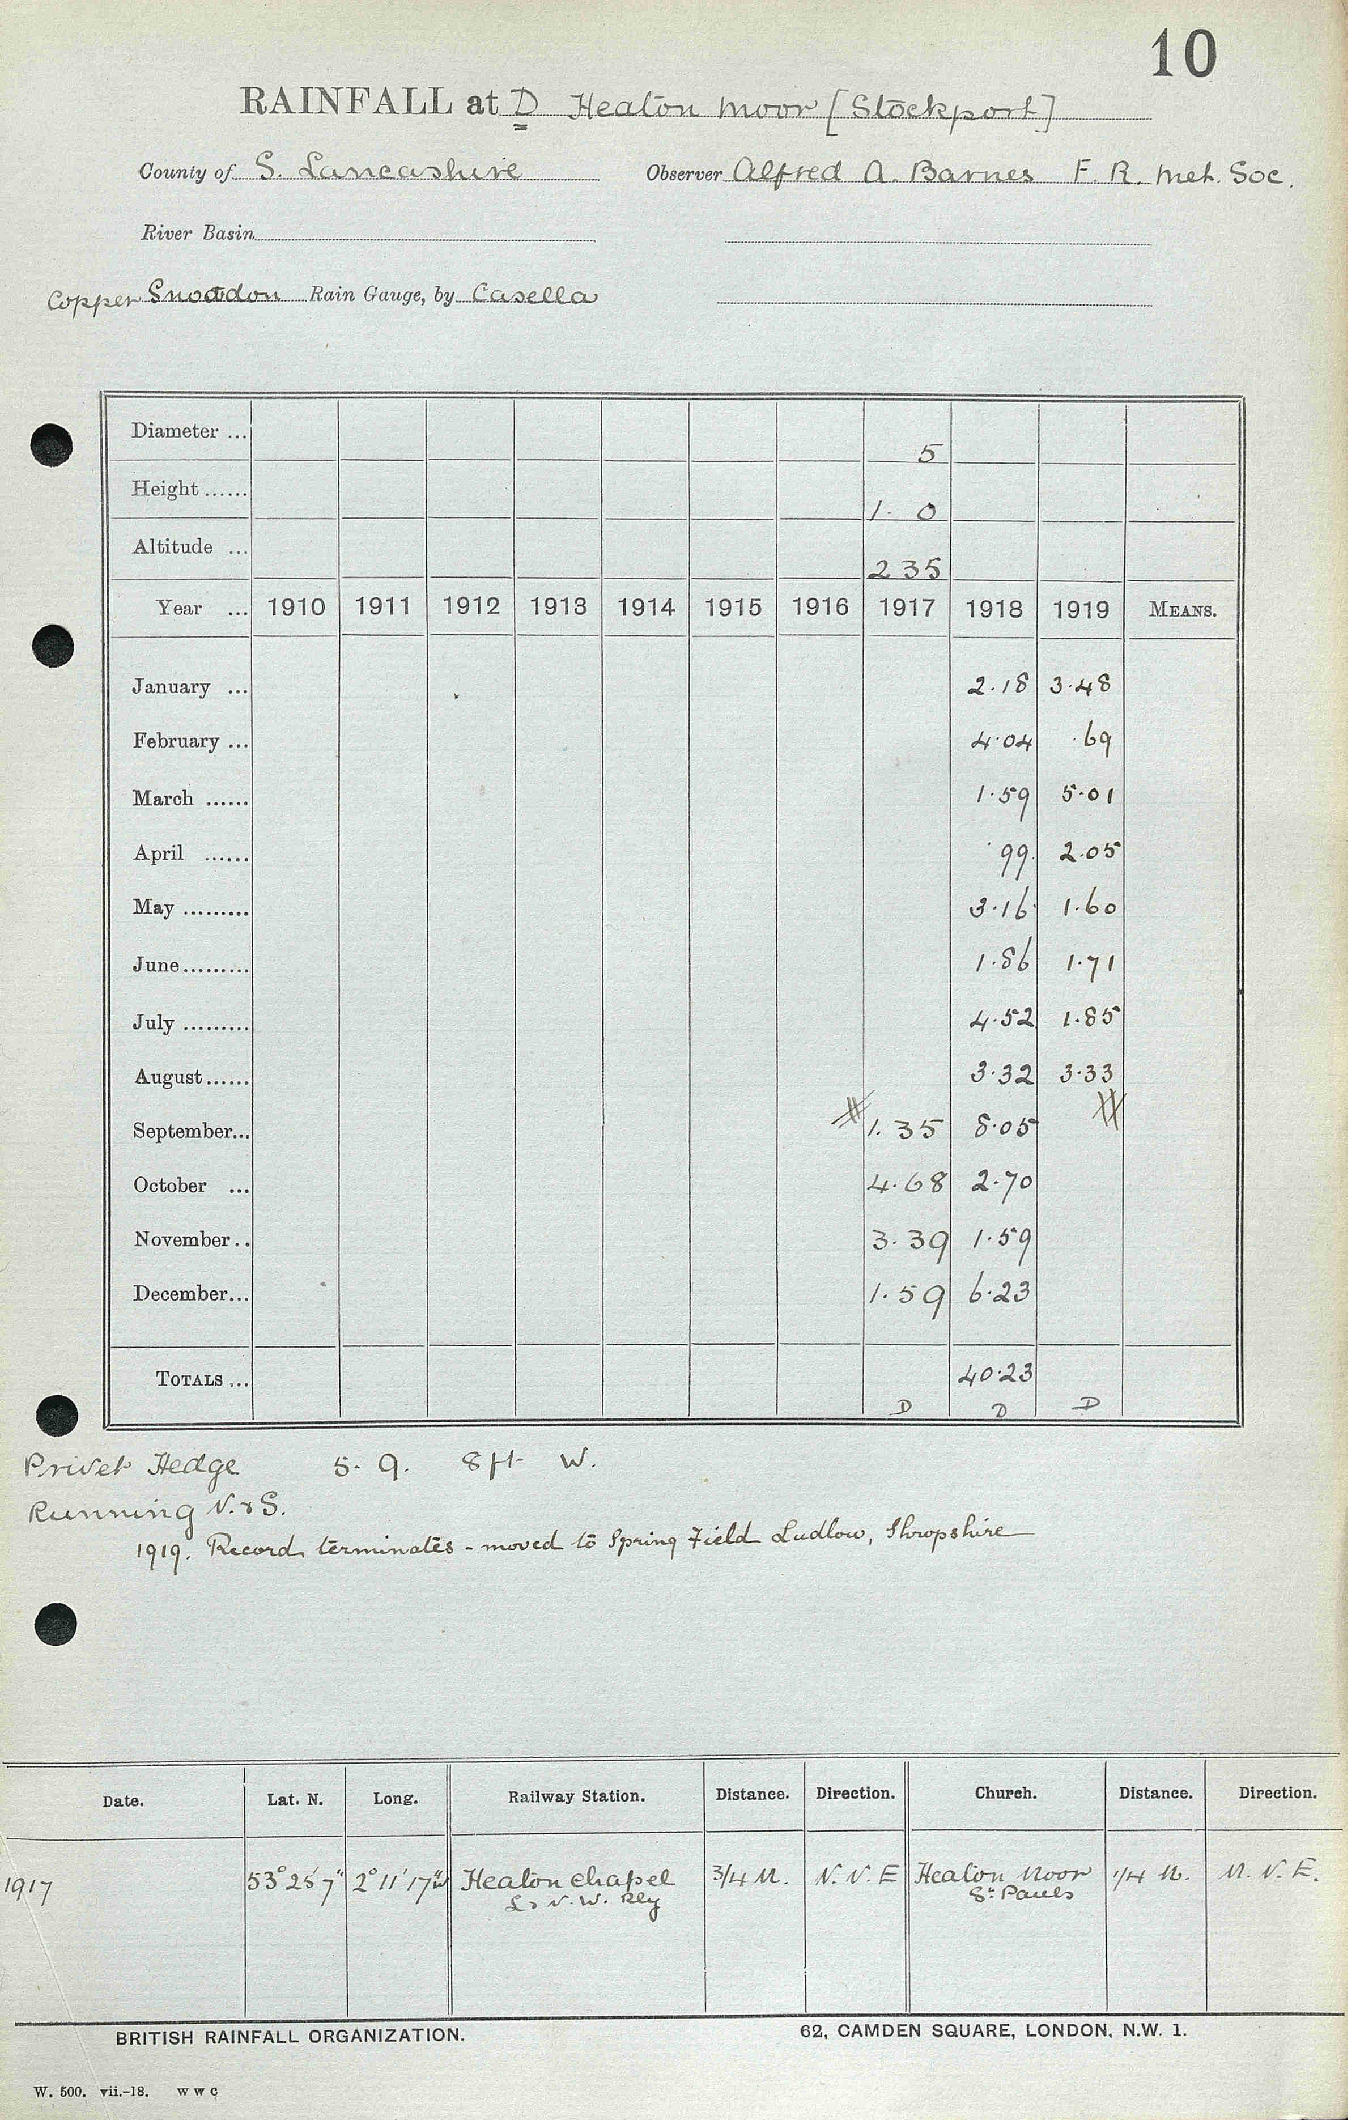 10
RAINFALL at D Heaton Moor [Stockport]
County of S. Lancashire Observer Alfred A. Barnes F. R. Met. Soc.
River Basin
Copper Snowdon Rain Gauge, by Casella
Diameter ... 5
Height ...... 1. 0
Altitude ... 235
Year ... 1910 1911 1912 1913 1914 1915 1916 1917 1918 1919 MEANS.
January ... 2.18 3.48
February ... 4.04 .69
March ...... 1.59 5.01
April ...... .99 2.05
May ......... 3.16 1.60
June ......... 1.86 1.71
July ......... 4.52 1.85
August ...... 3.32 3.33
September... 1.35 8.05
October ... 4.68 2.70
November .. 3.39 1.59
December... 1.59 6.23
TOTALS ... 40.23
D D D
Privet Hedge 5. 9. 8ft W.
Running N. & S.
1919. Record terminates - moved to Spring Field Ludlow, Shropshire
Date. Lat. N. Long. Railway Station. Distance. Direction. Church. Distance. Direction.
1917 53° 25' 7" 2° 11' 17" W Heaton Chapel 3/4 M. N. N. E Heaton Moor 1/4 M. N. N. E.
L & N. W. Rly St Pauls
BRITISH RAINFALL ORGANIZATION. 62, CAMDEN SQUARE, LONDON, N.W. 1.
W. 500. vii.-18. W W C